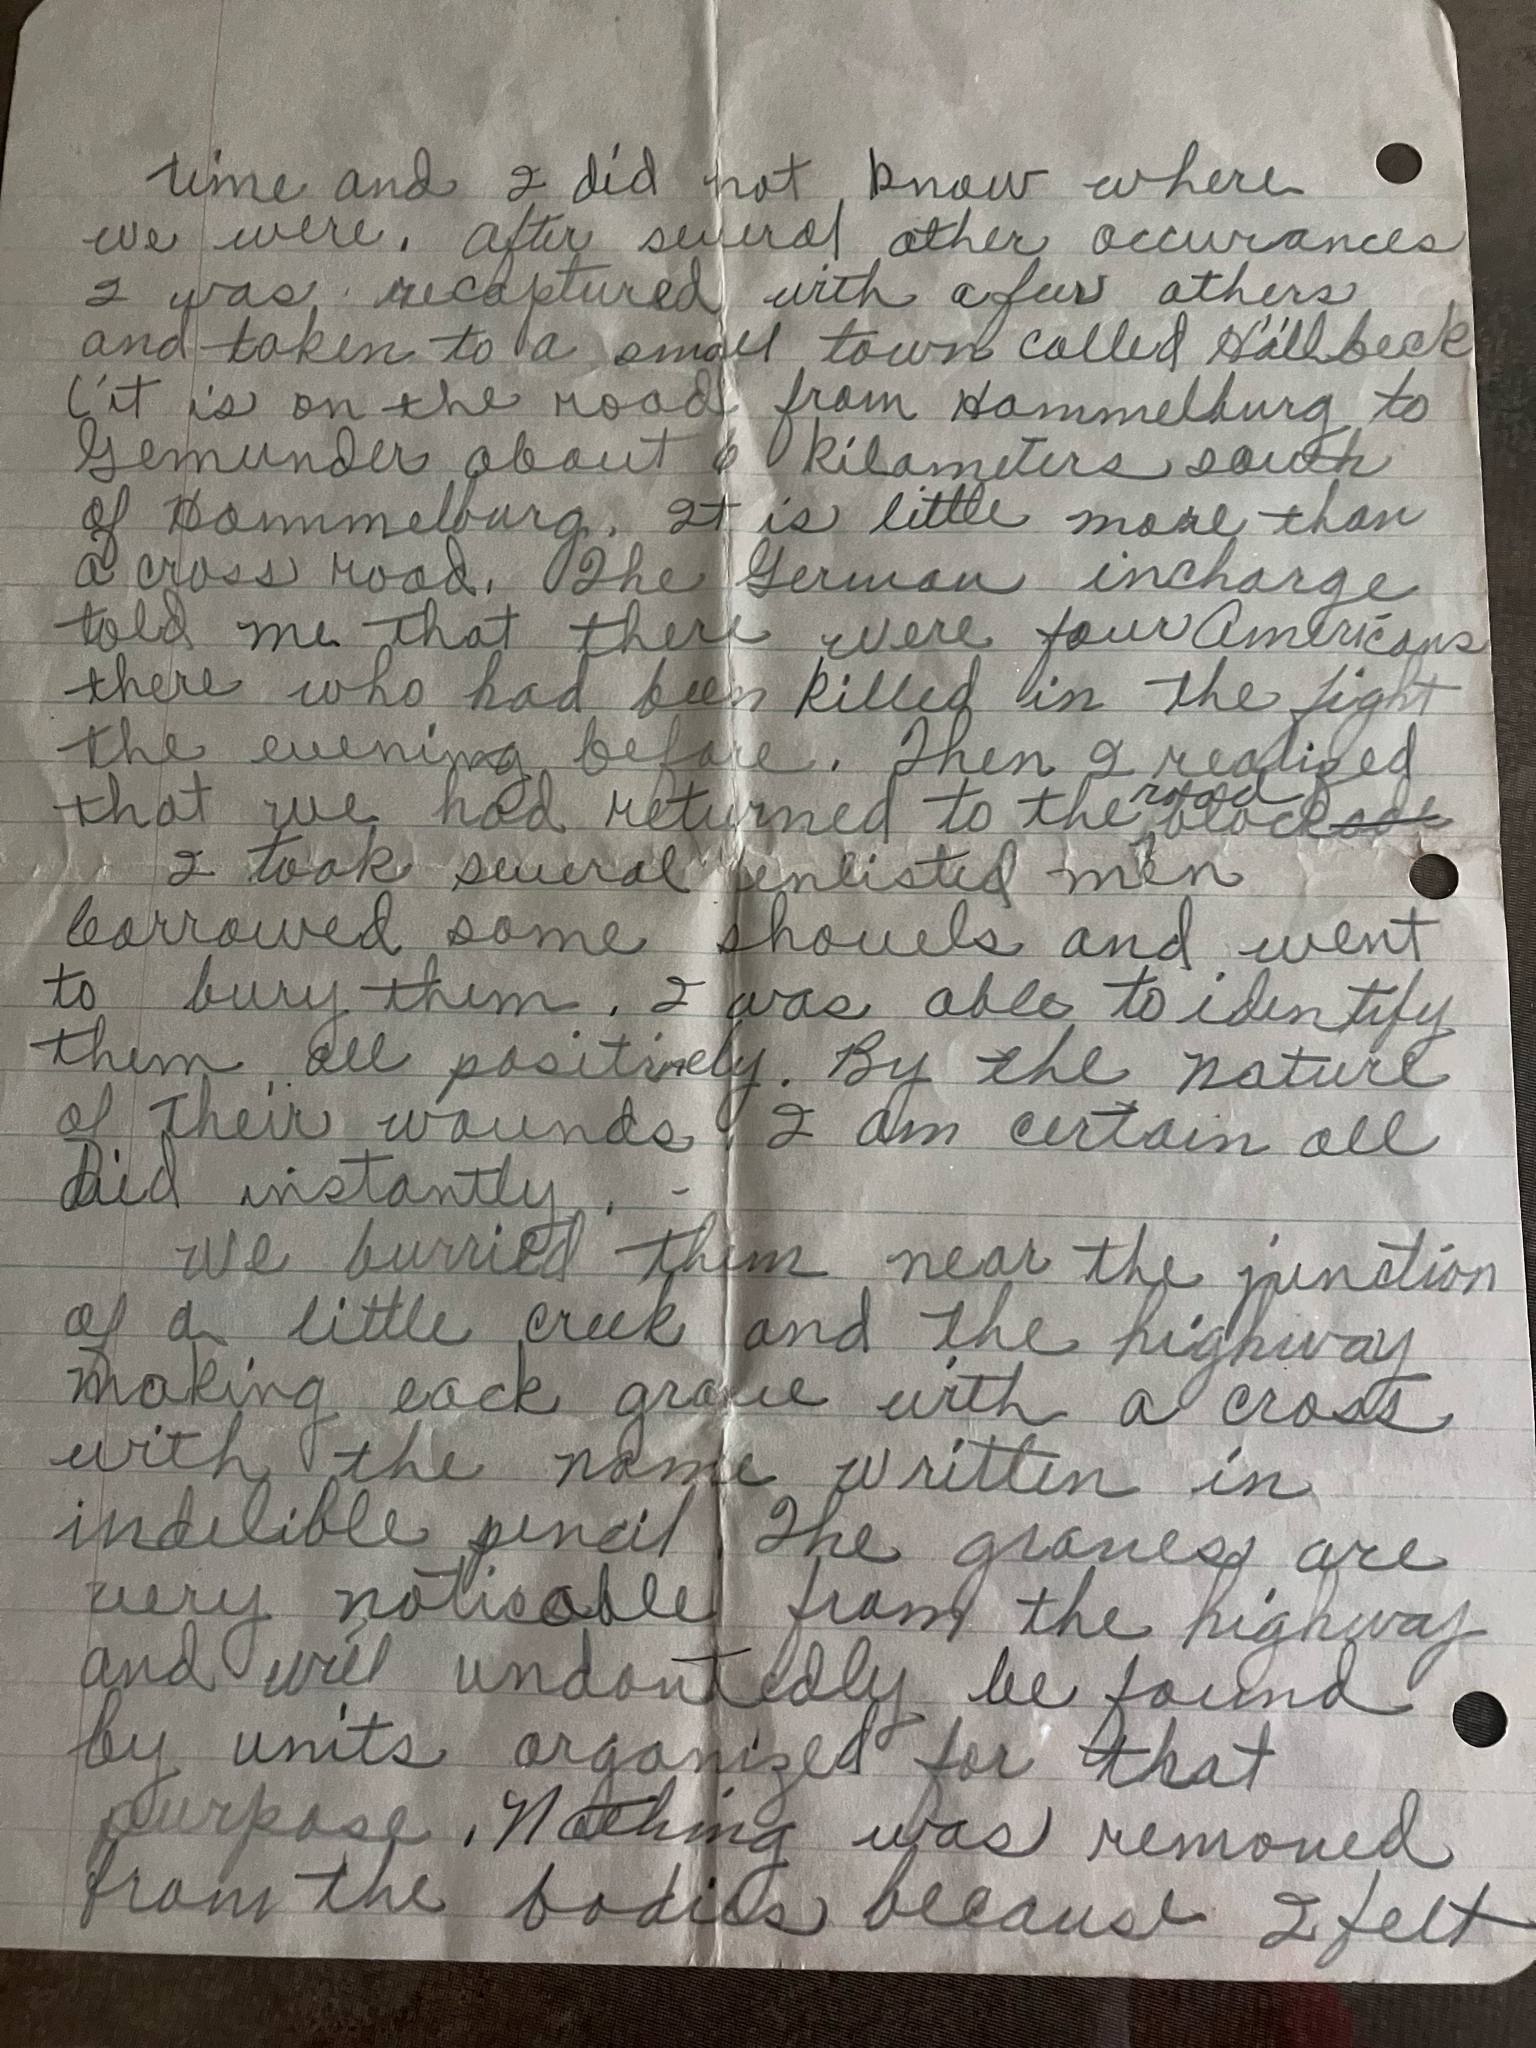 time and I did not know where
we were. After several other occurances
I was recaptured with a few others
and taken to a small town called Hállbeck
(it is on the road from Hammelburg to
Gemunder about 6 kilometers south
of Hammelburg. It is little more than
a cross road. The German incharge
told me that there were four Americans
there who had been killed in the fight
the evening before. Then I realized
that we had returned to the road block
I took several enlisted men
borrowed some shovels and went
to bury them. I was able to identify
them all positively. By the nature
of their wounds, I am certain all
died instantly. -
We burried them near the junction
of a little creek and the highway
making each grave with a cross
with the name written in
indelible pencil. The graves are
very noticable from the highway
and will undoutedly be found
by units organized for that
purpose. Nothing was removed
from the bodies because I felt